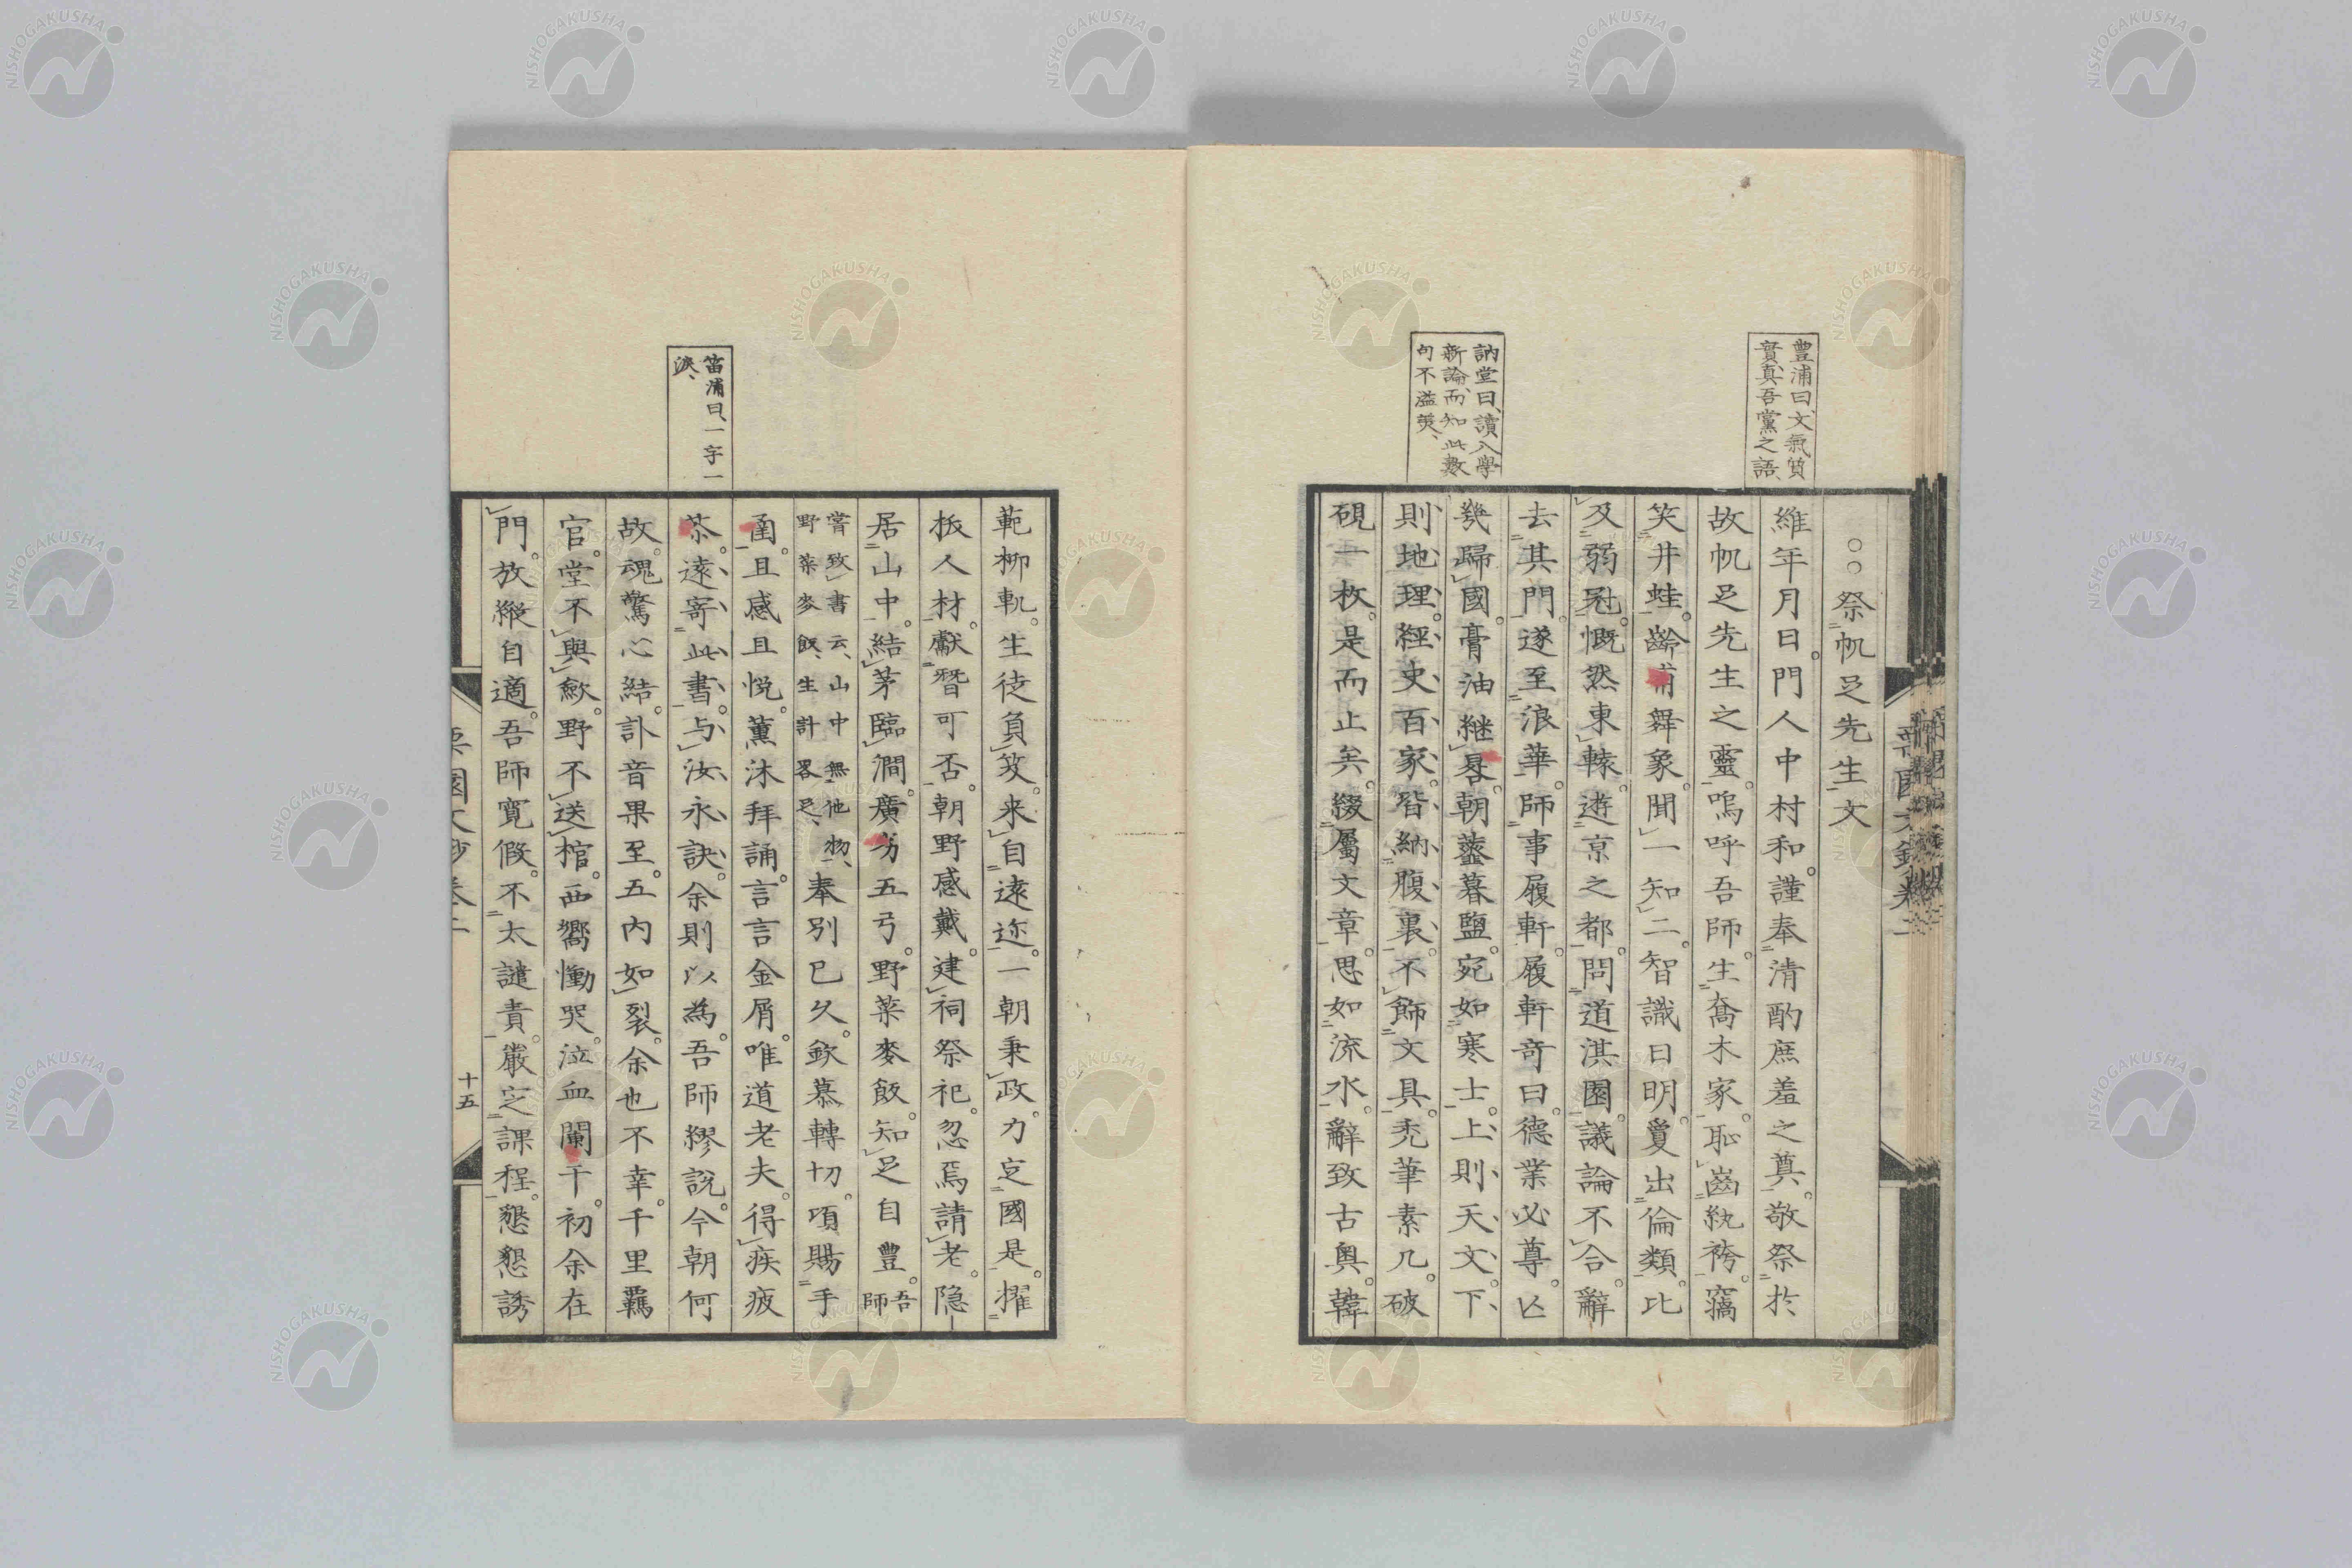 豊浦曰、文氣質
實、真吾黨之語、
訥堂曰、讀入學
新論、而知此數
句不溢美、
○○祭帆足先生文
維年月日。門人中村和。謹奉清酌庶羞之奠。敬祭於
故帆足先生之靈。嗚呼吾師。生喬木家。恥齒紈袴。竊
笑井蛙。齡甫舞象。聞一知二。智識日明。夐出倫類。比
及弱冠。慨然東轅。遊京之都。問道淇園。議論不合。辭
去其門。遂至浪華。師事履軒。履軒奇曰。德業必尊。亡
幾歸國。膏油継晷。朝虀暮鹽。宛如寒士。上、則、天、文、下、
則、地、理、經、史、百、家、皆、納、腹、裏。不飾文具。禿筆素几。破
硯一枚。是而止矣。綴屬文章。思如流水。辭致古奥。韓
範柳軌。生徒負笈。来自遠迩。一朝秉政。力定國是。擢
板人材。獻替可否。朝野感戴。建祠祭祀。忽焉請老。隐
居山中。結茅臨澗。廣劣五弓。野菜麥飯。知足自豊。吾師
嘗致書云、山中無他物、野菜麥飯、生計畧足、奉別已久。欽慕轉切。項賜手
圅。且感且悦。薫沐拜誦。言言金屑。唯道老夫。得疾疲
苶。遠、寄、此、書、与、汝、永、訣。余則以為。吾師繆説。今朝何
故。魂驚心結。訃音果至。五内如裂。余也不幸。千里覊
官。堂不與歛。野不送棺。西嚮慟哭。泣血闌干。初余在
門。放縱自適。吾師寛假。不太譴責。嚴定課程。懇懇誘
笛浦曰、一字一
淚、
栗園文鈔卷二
十五